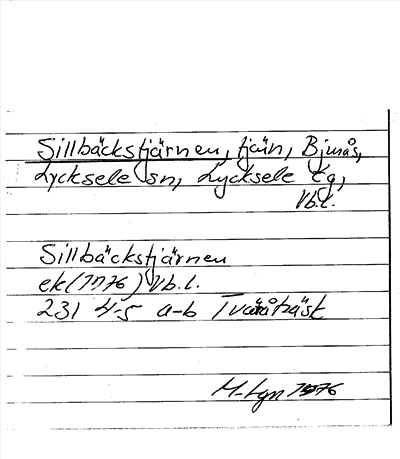 Sillbäckstjärnen, tjärn, Bjurås,
Lycksele sn, Lycksele tg,
Vb.l.
Sillbäckstjärnen
ek (1976) Vb.l.
231 4-5 a-b Tväråträsk
M-Lyn 1976